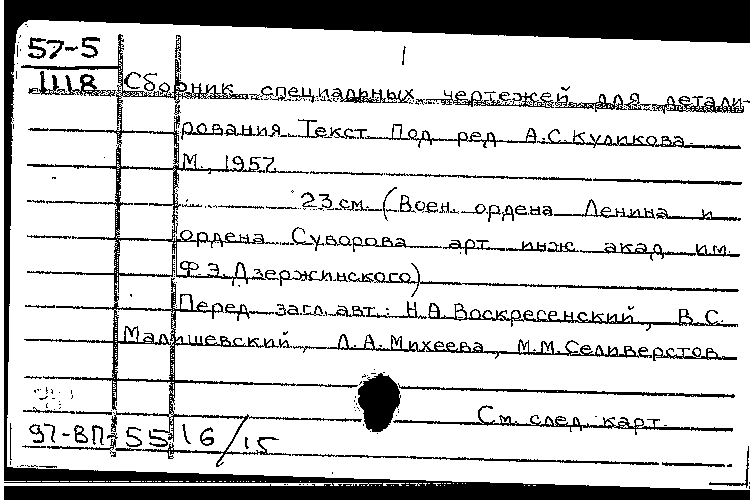 57-5
1118 Сборник специальных чертежей для детали-
рования Текст Под ред А.С.Куликова
М., 1957
23 см. (Воен. ордена Ленина и
ордена Суворова арт инж акад им.
Ф.Э.Дзержинского)
Перед загл. авт.: Н.А.Воскресенский, В.С.
Малишевский, Л.А.Михеева, М.М.Селиверстов
См. след. карт.
97-ВП-55 16/15